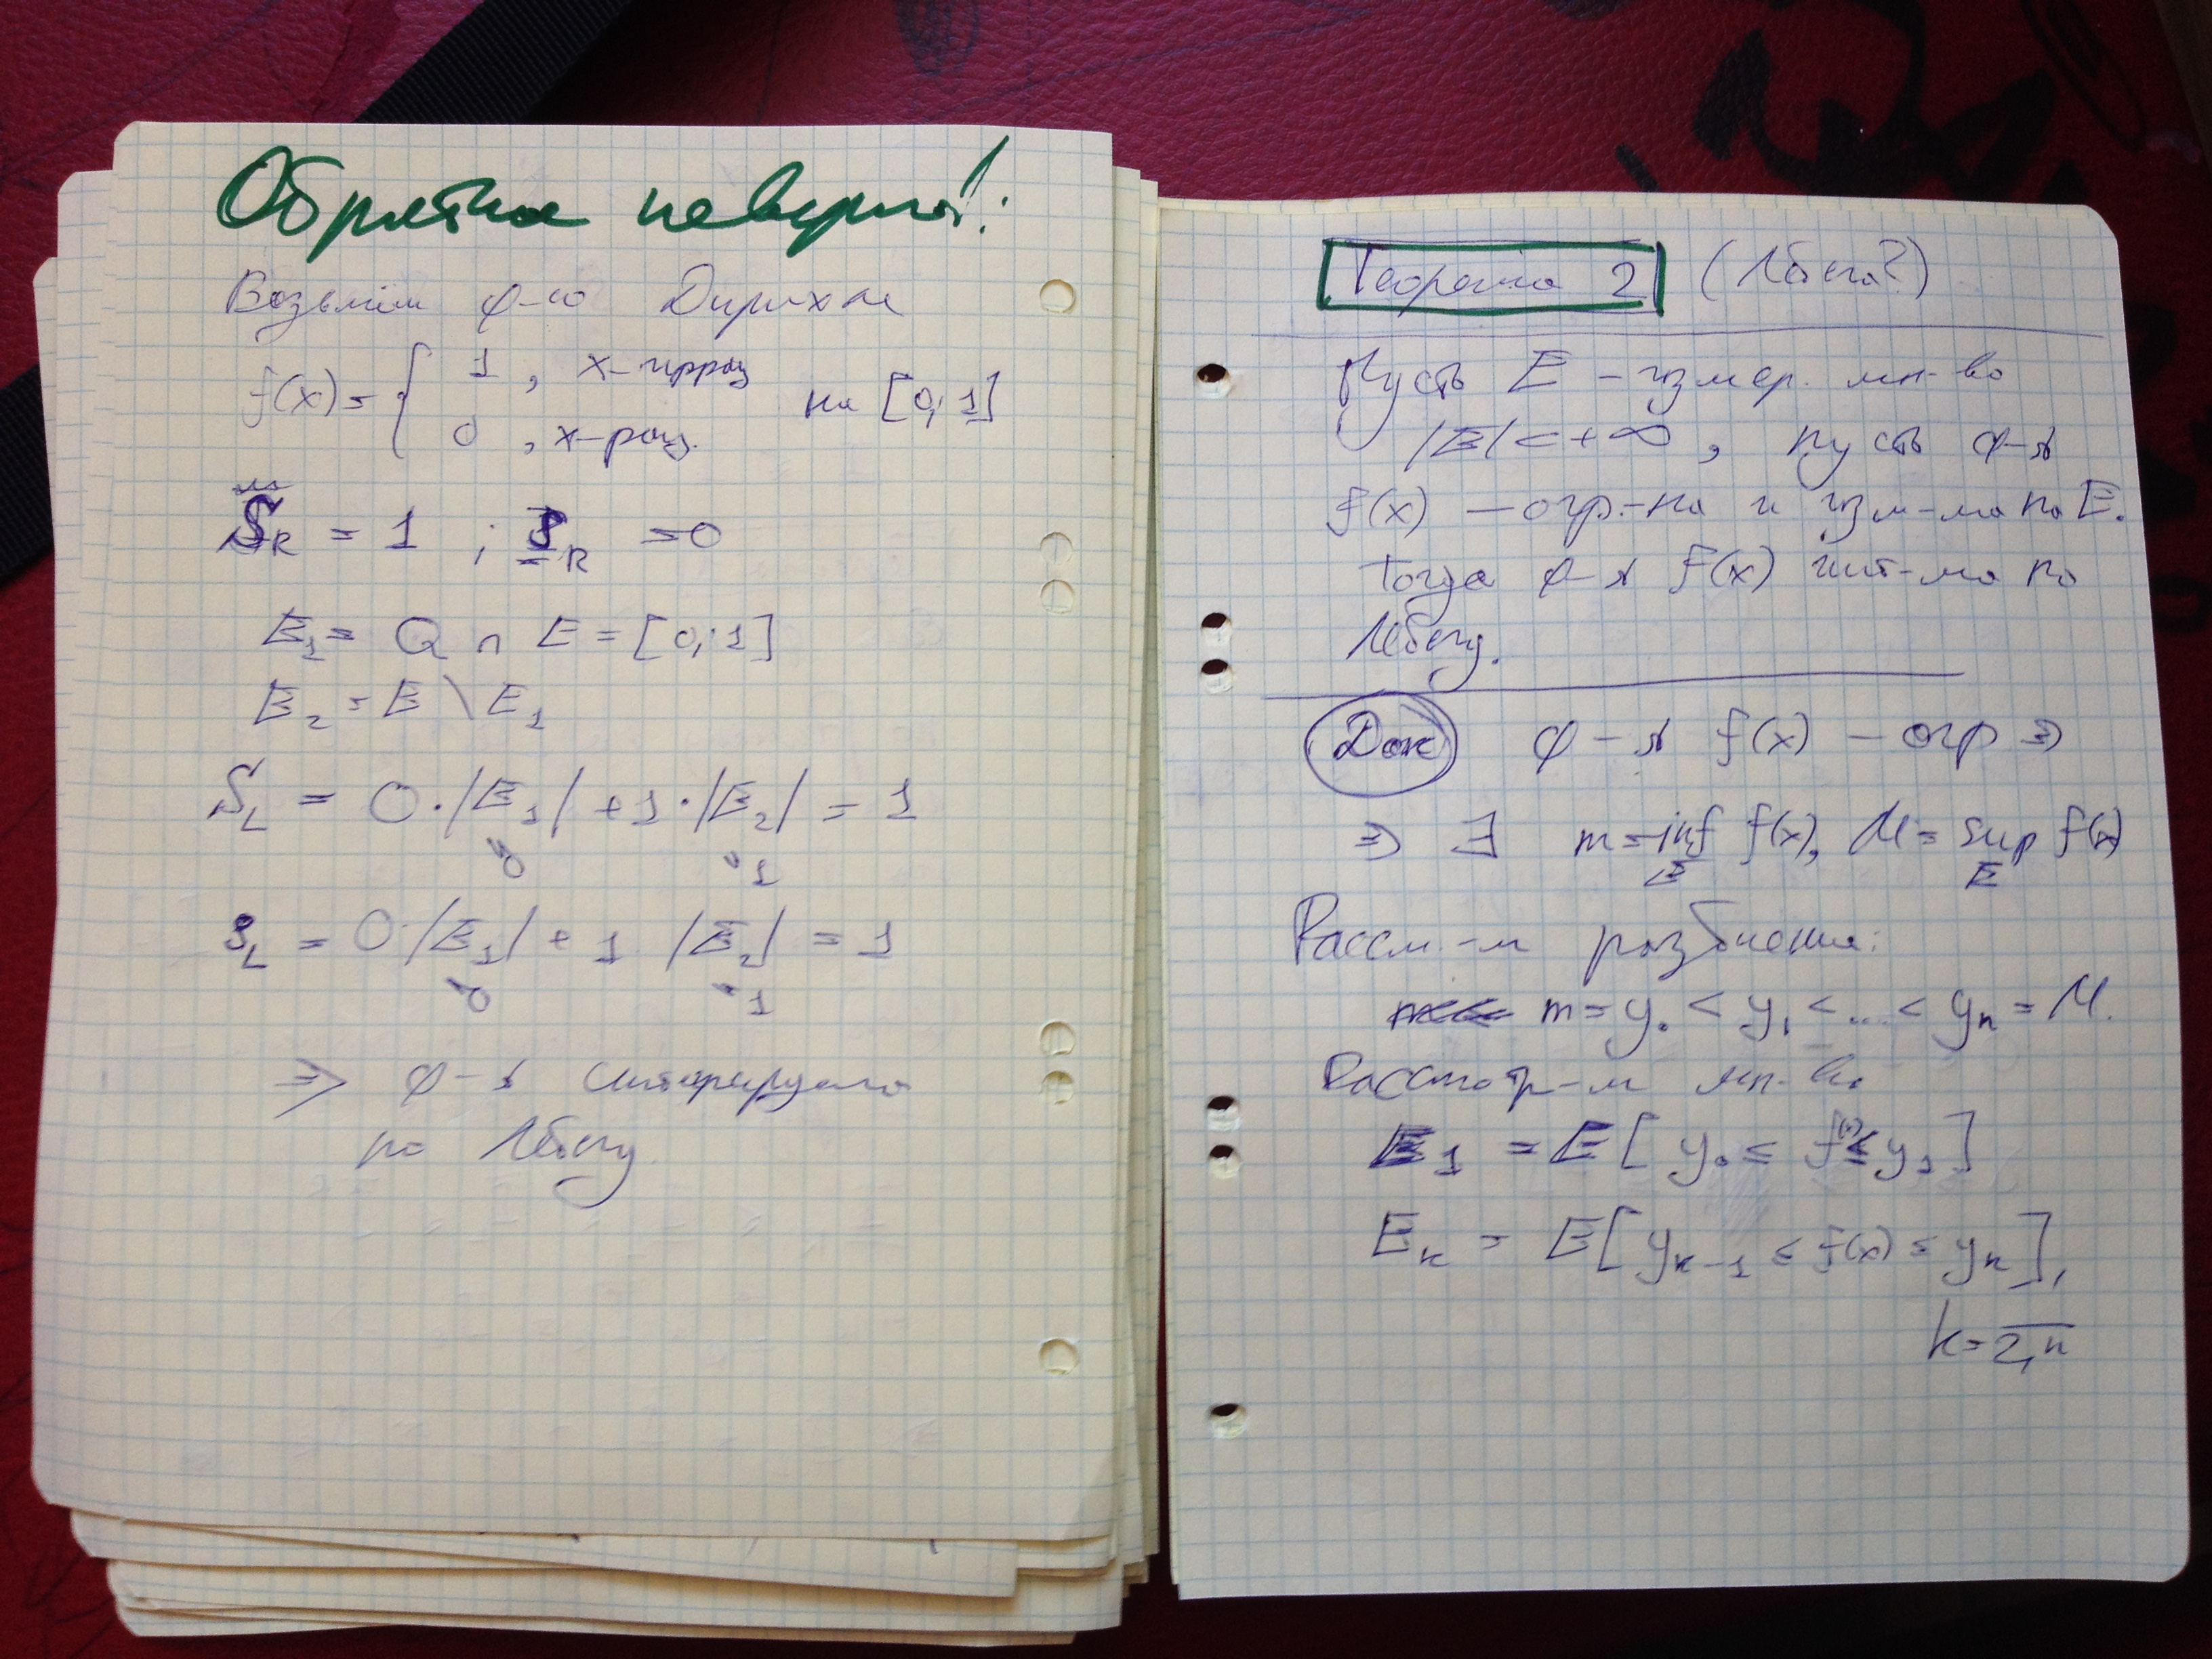 Обратное неверно!:
Возьмём ф-ю Дирихле
f(x) = { 1, x-иррац
0, x-рац. на [0;1]
S̅_R = 1 ; S̲_R = 0
E₁ = Q ∩ E = [0;1]
E₂ = E \ E₁
S_L = 0·|E₁| + 1·|E₂| = 1
"0 "1
s_L = 0·|E₁| + 1 |E₂| = 1
"0 "1
⇒ ф-я интегрируема
по Лебегу
Теорема 2 (Лебега?)
Пусть E – измер. мн-во
|E| < +∞, пусть ф-я
f(x) – огр.-на и изм-ма на E.
Тогда ф-я f(x) инт-ма по
Лебегу.
Док ф-я f(x) – огр ⇒
⇒ ∃ m = inf f(x), M = sup f(x)
E E
Рассм.-м разбиение:
m = y₀ < y₁ < ... < yₙ = M.
Рассмотр-м мн-ва
E₁ = E[ y₀ ≤ f(x) ≤ y₁ ]
Eₖ = E[ yₖ₋₁ ≤ f(x) ≤ yₖ ],
k = 2,n